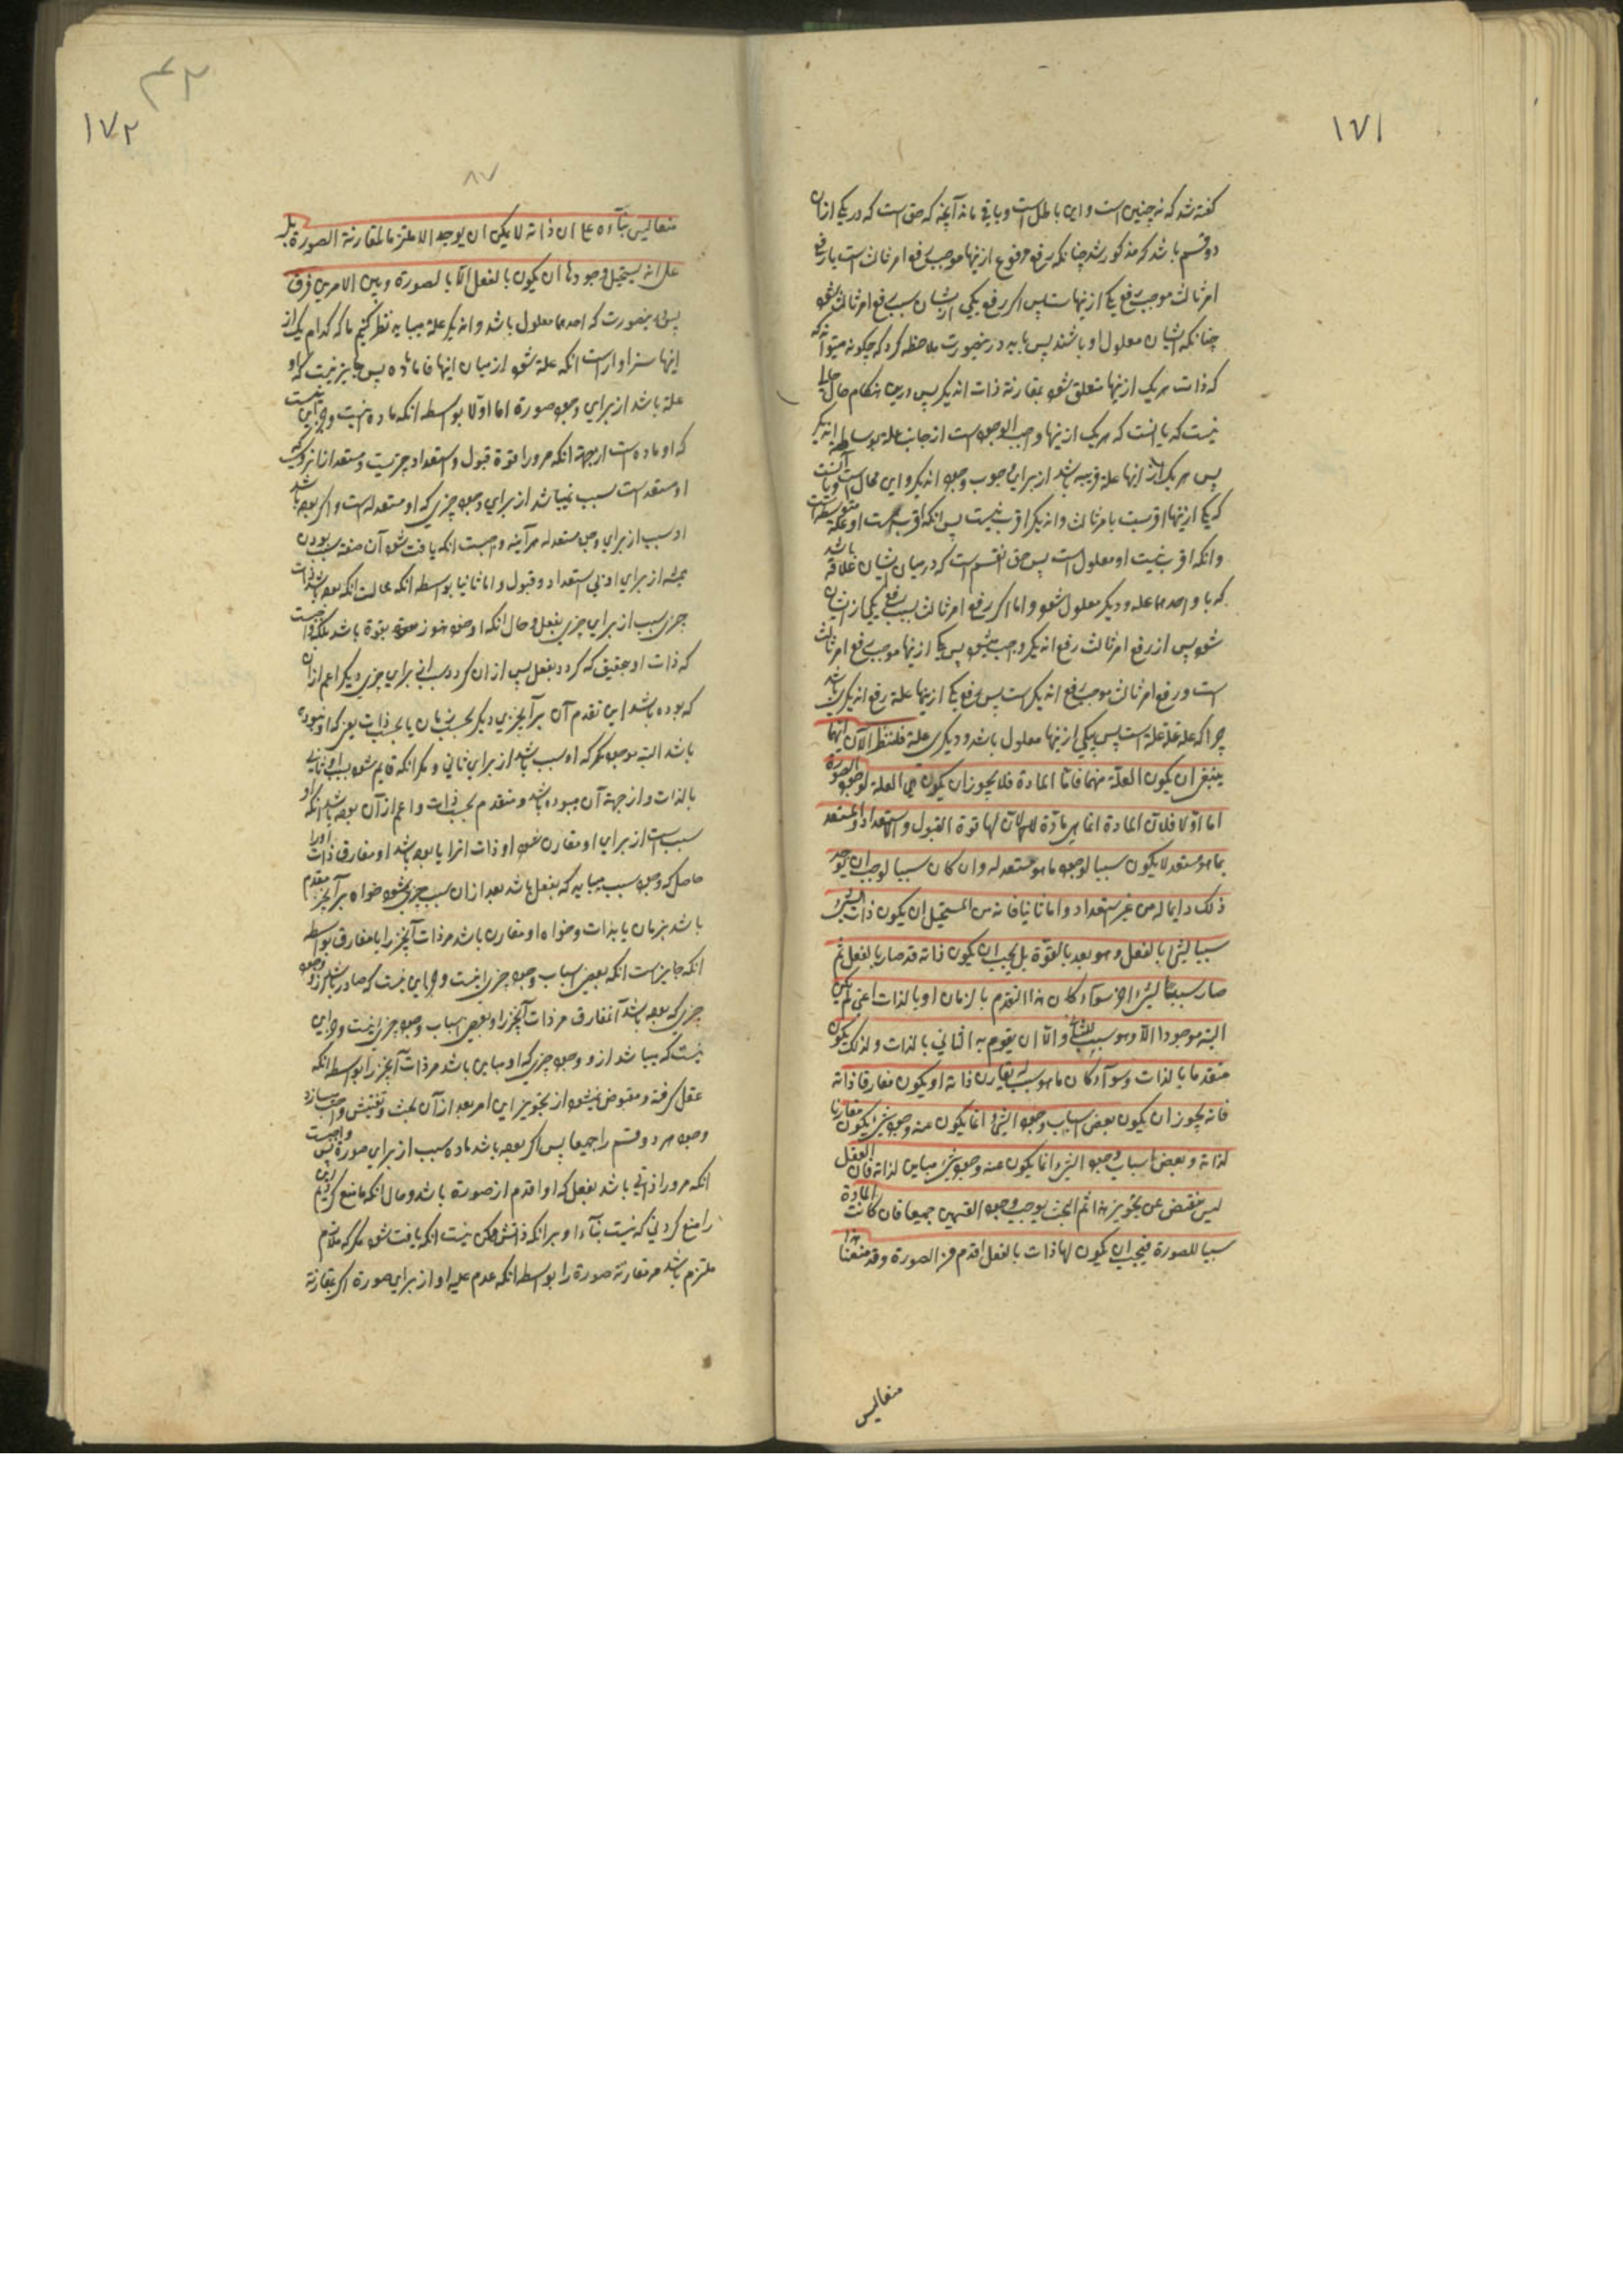 ١٧١
كفته شد كه نه چنين است و اين باطل است و باقى ماند آنچه كه حق است كه در يكى ازان
دو قسم باشد كه مذكور شد چنانكه رفع مرفوع ازينها موجب رفع امر ثالث است يا رفع
امر ثالث موجب رفع يكى ازينهاست پس اكر رفع يكى ازيشان سبب رفع امر ثالث شود
چنانكه ايشان معلول او باشند پس بايد درينصورت ملاحظه كرد كه چكونه ميتواند
كه ذات هر يك ازينها متعلق شود بمقارنة ذات انديكر پس درين هنكام حال خالى
نيست كه يا انست كه هر يك ازينها واجب الوجود است از جانب علة بواسطه انديكر
پس هر يك از اينها علة قريبه باشد از براى وجوب وجود انديكر و اين محال است و يا انست
كه يكى ازينها اقربست بامر ثالث و انديكر اقرب نيست پس انكه اقرب است او علة متوسط است
و انكه اقرب نيست او معلول است پس حق انقسم است كه در ميان ايشان علاقه باشد
كه باو احدهما علة و ديكر معلول شود و اما اكر رفع امر ثالث بسبب رفع يكى ازايشان
شود پس از رفع امر ثالث رفع انديكر واجب ميشود پس يكى ازينها موجب رفع امر ثالث
است و رفع امر ثالث موجب رفع انديكر است پس رفع يكى ازينها علة رفع انديكر باشد
چرا كه علة علة علة است پس يكى ازينها معلول باشد و ديكرى علة فلننظر الآن ايهما
ينبغى ان يكون العلة منهما فاما المادة فلا يجوز ان يكون هى العلة لوجود الصورة
اما اولا فلان المادة انما هى مادة لان لها قوة القبول و الاستعداد و المستعد
بما هو مستعد لا يكون سببا لوجود ما هو مستعد له و ان كان سببا لوجب ان يوجد
ذلك دايما له من غير استعداد و اما ثانيا فانه من المستحيل ان يكون ذات الشىء
سببا لشى بالفعل و هو بعد بالقوة بل يجب ان يكون ذاته قد صار بالفعل ثم
صار سببا لشىء اخر سواء كان هذا التقدم بالزمان او بالذات اعنى لم يكن
البتة موجودا الا و هو سبب للثانى و الا ان يقوم به الثانى بالذات و لذلك يكون
متقدما بالذات و سواء كان ما هو سبب له يقارن ذاته او يكون مفارقا ذاته
فانه يجوز ان يكون بعض اسباب وجود الشىء انما يكون عنه وجود شىء يكون مقارنا
لذاته و بعض اسباب وجود الشىء انما يكون عنه وجود شىء مباين لذاته فان العقل
ليس ينقبض عن تجويز هذا ثم البحث يوجب وجود القسمين جميعا فان كانت المادة
سببا للصورة فيجب ان يكون لها ذات بالفعل اقدم من الصورة و قد منعنا هذا
منعا ليس
١٧٢
٨٧
منعا ليس بناءه على ان ذاته لا يمكن ان يوجد الا ملتزما لمقارنة الصورة بل
على انه يستحيل وجودها ان يكون بالفعل الا بالصورة و بين الامرين فرق
پس درينصورت كه احدهما معلول باشد و انديكر علة ميبايد نظر كنيم ما كه كدام يك از
اينها سزاوار است انكه علة شود از ميان اينها فاما ماده پس جايز نيست كه او
علة باشد از براى وجود صورة اما اولا بواسطه انكه ماده نيست و جز اين نيست
كه او ماده است از جهة انكه مرورا قوة قبول و استعداد چيزيست و مستعد از انروى كه
او مستعد است سبب نميباشد از براى وجود چيزى كه او مستعد له است و اكر بوده باشد
او سبب از براى وجود مستعد له هر آينه واجبست انكه يافت شود آن صفة سبب بودن
هميشه از براى او بى استعداد و قبول و اما ثانيا بواسطه انكه محالست انكه بوده باشد ذات
چيزى سبب از براى چيزى بفعل و حال انكه او خود هنوز بقوة باشد بلكه واجبست
كه ذات او بتحقيق كه كردد بفعل پس از ان كردد سبب از براى چيزى ديكر اعم ازان
كه بوده باشد اين تقدم آن بر آنچيزى ديكر بحسب زمان يا بحسب ذات يعنى كه او نبوده
باشد البته موجود مكر كه او سبب باشد از براى ثانى و مكر انكه قايم شود بسبب او ثانى
بالذات و از جهة آن ميبوده باشد او متقدم بحسب ذات و اعم از آن بوده باشد انكه او
سبب است از براى او مقارن شود او ذات انرا يا بوده باشد او مفارق ذات اورا
حاصل كه وجود سبب ميبايد كه بفعل باشد بعد ازان سبب چيزى شود خواه بر آنچيز مقدم
باشد بزمان يا بذات و خواه او مقارن باشد مر ذات آنچيز را يا مفارق بواسطه
انكه جايز است انكه بعضى اسباب وجود چيزى نيست و جز اين نيست كه صادر باشد ازو وجود
چيزى كه بوده باشد آن مقارن مر ذات آنچيز را و بعضى اسباب وجود چيزى نيست و جز اين
نيست كه ميباشد ازو وجود چيزى كه او مباين باشد مر ذات آنچيز را بواسطه انكه
عقل كرفته و مقبوض نميشود از تجويز اين امر بعد از آن بحث و تفتيش واجب ميسازد
وجود هر دو قسم را جميعا پس اكر بوده باشد ماده سبب از براى صورة پس واجبست
انكه مرورا ذاتى باشد بفعل كه او اقدم از صورة باشد و حال انكه ما منع كرديم اين
را منع كردنى كه نيست بناء او بر انكه ذاتش ممكن نيست انكه يافت شود مكر كه ملازم
ملتزم باشد مر مقارنة صورة را بواسطه انكه عدم عليه او از براى صورة اكر بمقارنة